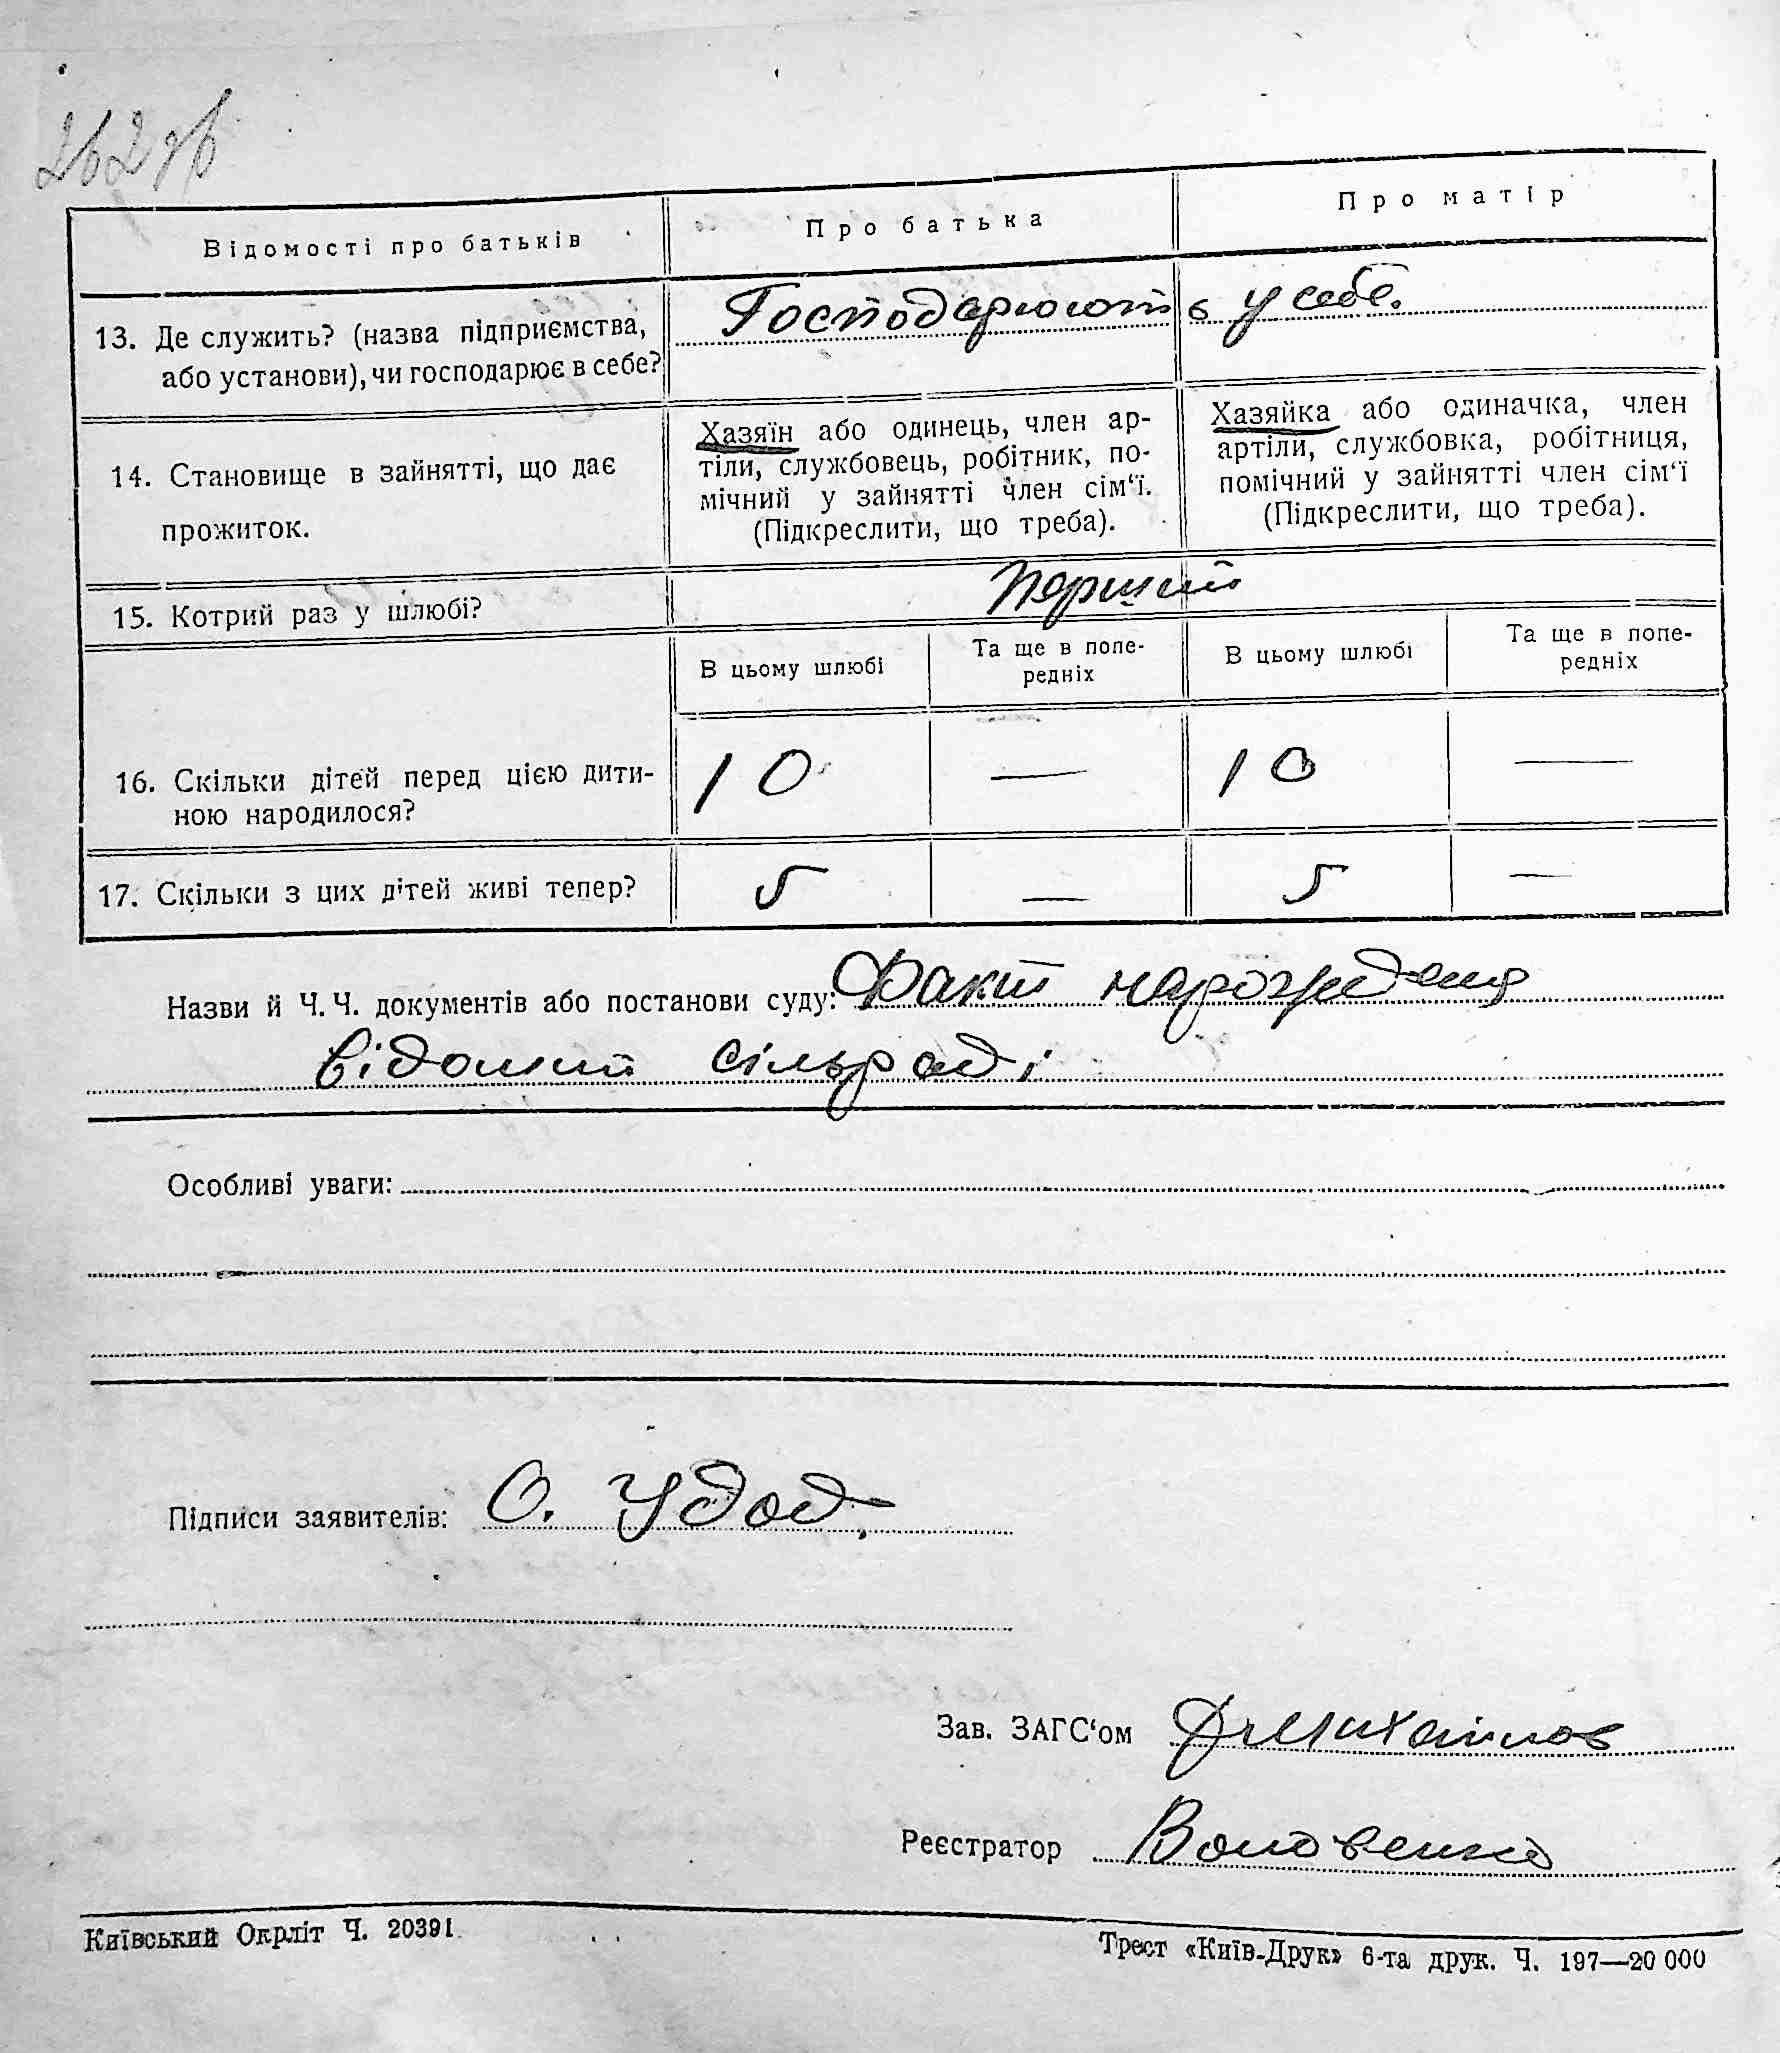 262зв
Відомості про батьків
Про батька
Про матір
13. Де служить? (назва підприємства,
або установи), чи господарює в себе?
Господарюють у себе.
14. Становище в зайнятті, що дає
прожиток.
Хазяїн або одинець, член ар-
тіли, службовець, робітник, по-
мічний у зайнятті член сім‘ї.
(Підкреслити, що треба).
Хазяйка або одиначка, член
артіли, службовка, робітниця,
помічний у зайнятті член сім‘ї
(Підкреслити, що треба).
15. Котрий раз у шлюбі?
Перший
В цьому шлюбі
Та ще в попе-
редніх
В цьому шлюбі
Та ще в попе-
редніх
16. Скільки дітей перед цією дити-
ною народилося?
10 — 10 —
17. Скільки з цих дітей живі тепер?
5 — 5 —
Назви й Ч.Ч. документів або постанови суду: Факт народження
відомий сільраді
Особливі уваги:
Підписи заявителів: О. Удод.
Зав. ЗАГС‘ом
Реєстратор Воловенко
Київський Окрліт Ч. 20391.
Трест «Київ-Друк» 6-та друк. Ч. 197—20 000